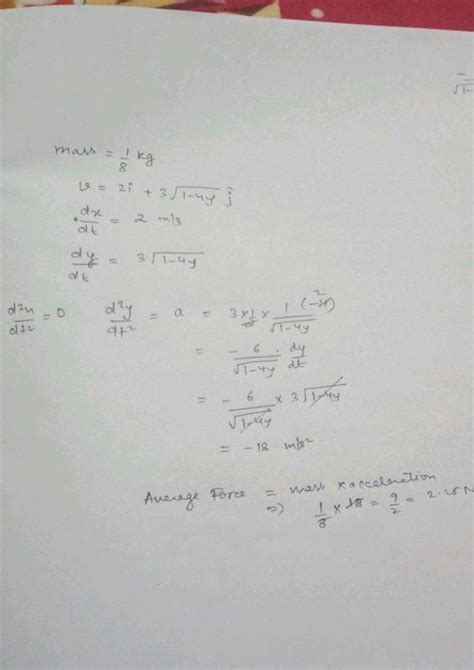 1
√1-
mass = 1/8 kg
v = 2i + 3√1-4y j
dx/dt = 2 m/s
dy/dt = 3√1-4y
d²x/dt² = 0 d²y/dt² = a = 3 × 1/2 × 1/√1-4y (-4) 2
= - 6/√1-4y · dy/dt
= - 6/√1-4y × 3√1-4y
= -18 m/s²
Average Force = mass × acceleration
=) 1/8 × 18 = 9/2 = 2.25 N